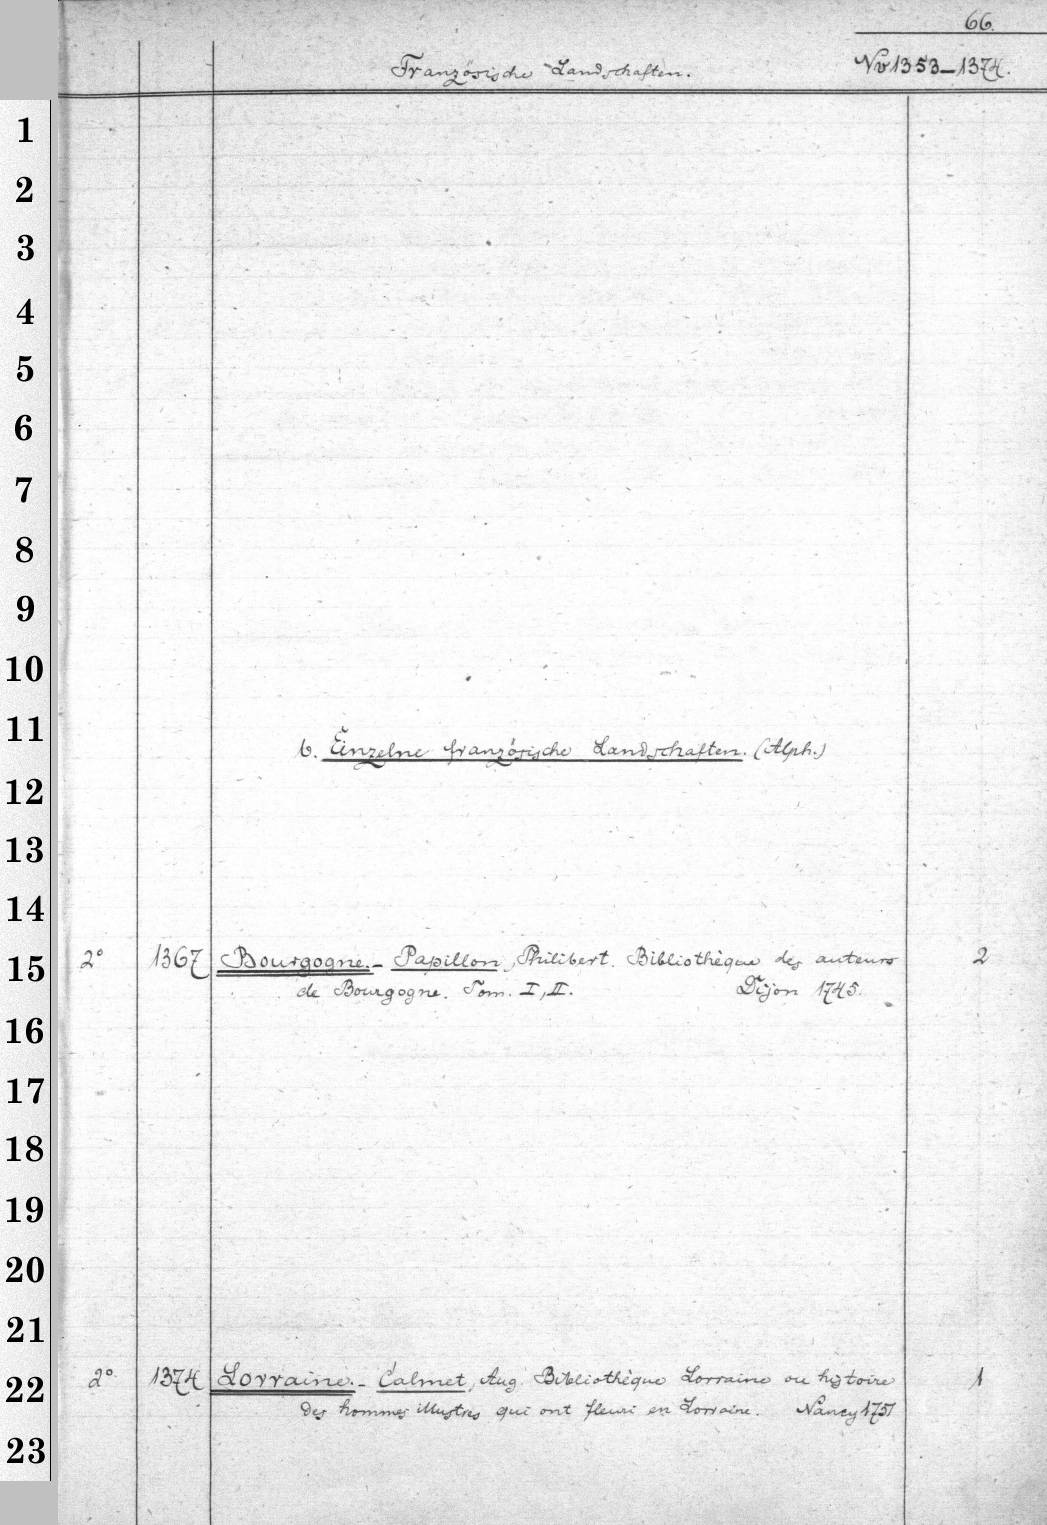 66.
Französische Landschaften. No 1353–1374.
1
2
3
4
5
6
7
8
9
10
11
b. Einzelne französische Landschaften. (Alph.)
12
13
14
15 2° 1367 Bourgogne. – Papillon, Philibert. Bibliothèque des auteurs 2
de Bourgogne. Tom. I, II. Dijon 1745.
16
17
18
19
20
21
22 2° 1374 Lorraine. – Calmet, Aug. Bibliothèque Lorraine ou histoire 1
des hommes illustres qui ont fleuri en Lorraine. Nancy 1751
23